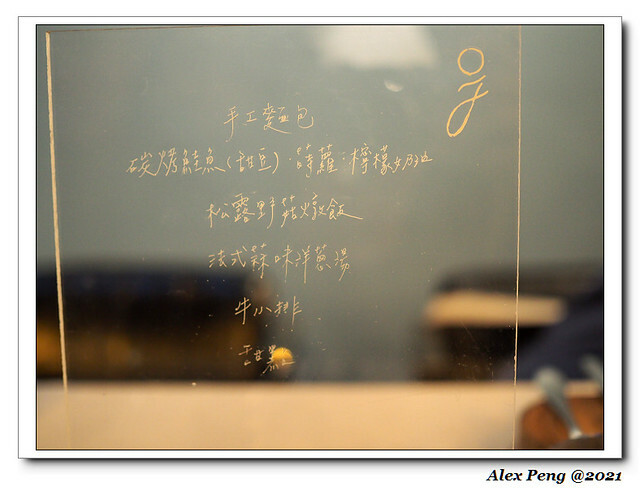 手工麵包
碳烤鮭魚(甜豆)、蒔蘿、檸檬奶油
松露野菇燉飯
法式蒜味洋蔥湯
牛小排
甜點
Alex Peng @2021